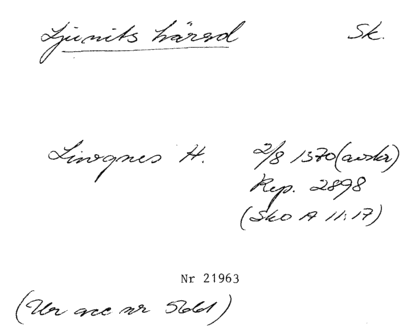 Ljunits härad Sk.
Liwgnes H. 2/8 1370 (avskr)
Rep. 2898
(Sko A 11:17)
Nr 21963
(Ur acc nr 5661)